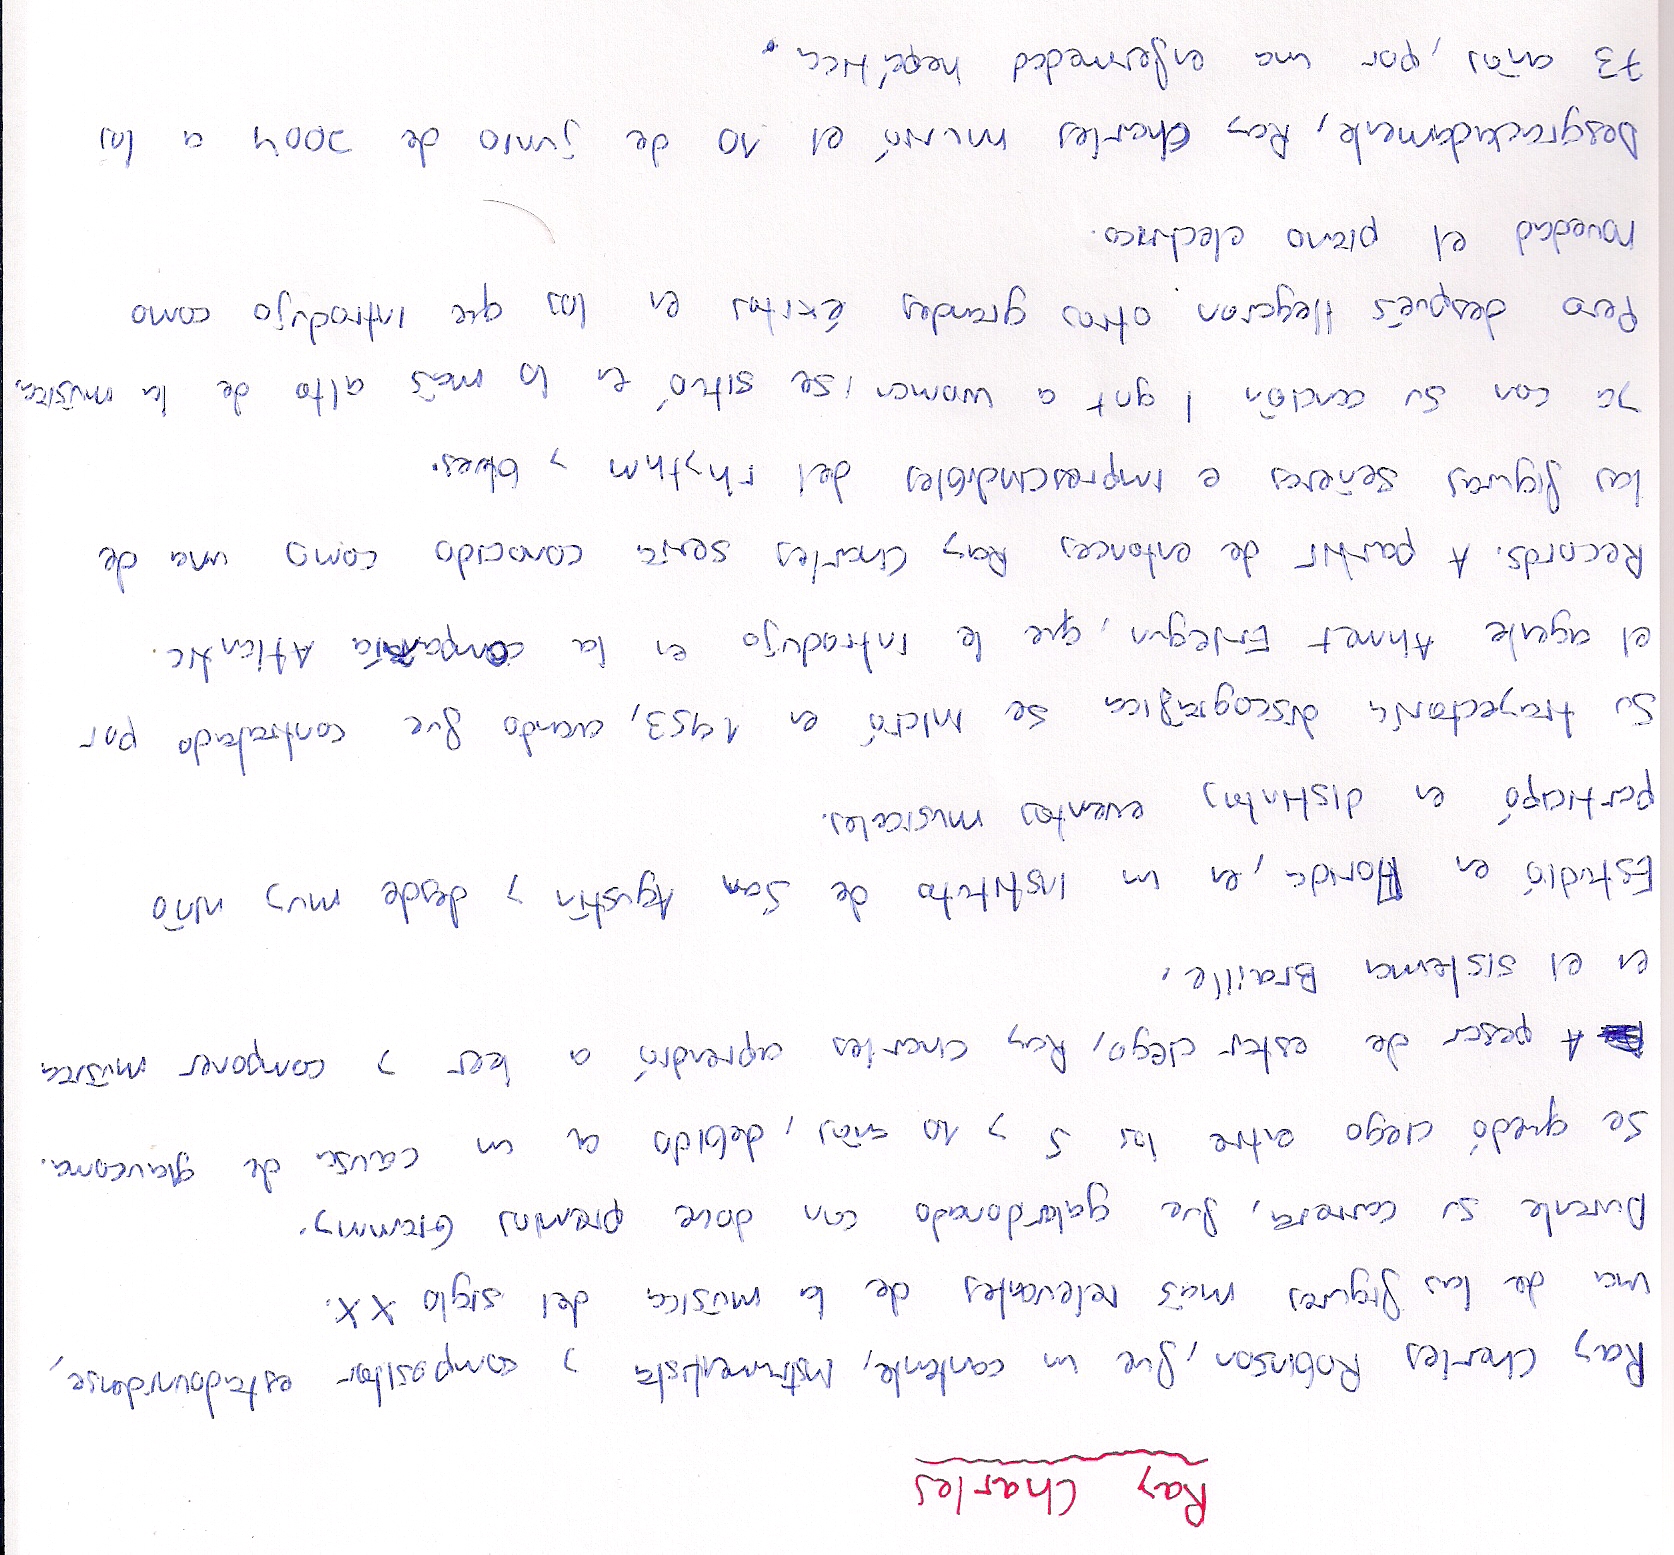 Ray Charles
Ray Charles Robinson, fue un cantante, instrumentista y compositor estadounidense,
una de las figuras más relevantes de la música del siglo XX.
Durante su carrera, fue galardonado con doce premios Grammy.
Se quedó ciego entre los 5 y 10 años, debido a un causa de glaucoma.
A pesar de estar ciego, Ray Charles aprendió a leer y componer música
en el sistema Braille.
Estudió en Florida, en un instituto de San Agustín y desde muy niño
participó en distintos eventos musicales.
Su trayectoría discográfica se inició en 1953, cuando fue contratado por
el agente Ahmet Ertegun, que le introdujo en la compañía Atlantic.
Records. A partir de entonces Ray Charles sería conocido como una de
las figuras señeras e imprescindibles del rhythm y blues.
Ya con su canción I got a woman, se situó en lo más alto de la música,
Pero después llegaron otros grandes éxitos en los que introdujo como
novedad el piano electrico.
Desgraciadamente, Ray Charles murió el 10 de junio de 2004 a los
73 años, por una enfermedad hepática.